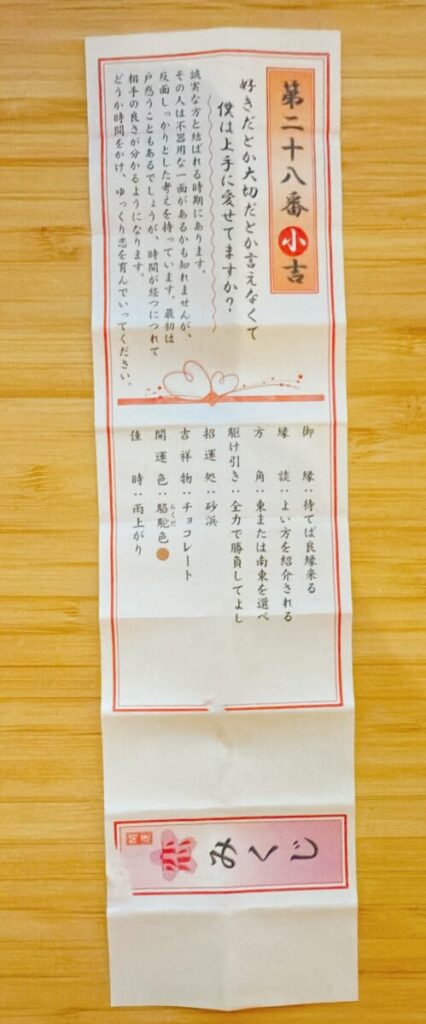 第二十八番 小吉
好きだとか大切だとか言えなくて
僕は上手に愛せてますか?
誠実な方と結ばれる時期にあります。
その人は不器用な一面があるかも知れませんが、
反面しっかりとした考えを持っています。最初は
戸惑うこともあるでしょうが、時間が経つにつれて
相手の良さが分かるようになります。
どうか時間をかけ、ゆっくり恋を育んでいってください。
御縁:待てば良縁来る
縁談:よい方を紹介される
方角:東または南東を選べ
駆け引き:全力で勝負してよし
招運処:砂浜
吉祥物:チョコレート
開運色:駱駝色
らくだ
佳時:雨上がり
恋みくじ